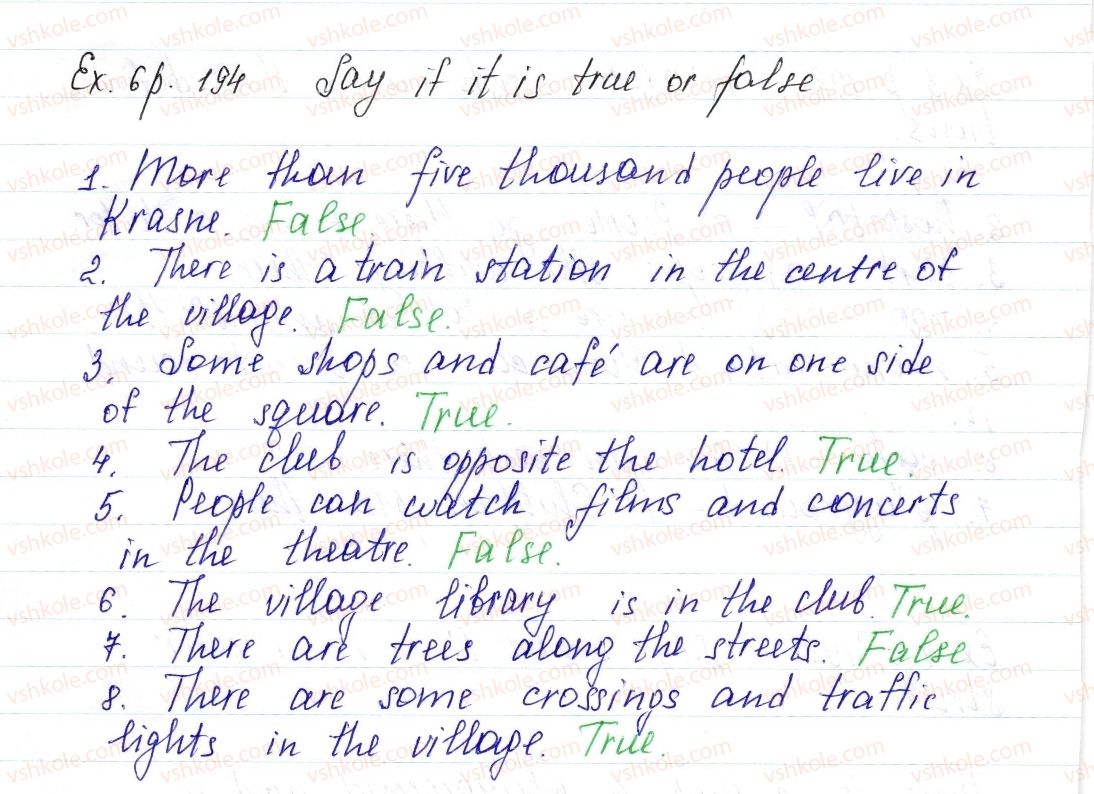 Ex. 6 p. 194 Say if it is true or false
1. More than five thousand people live in
Krasne. False.
2. There is a train station in the centre of
the village. False.
3. Some shops and café are on one side
of the square. True.
4. The club is opposite the hotel. True.
5. People can watch films and concerts
in the theatre. False.
6. The village library is in the club. True.
7. There are trees along the streets. False
8. There are some crossings and traffic
lights in the village. True.
vshkole.com